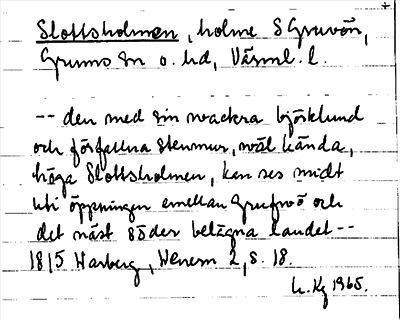 Slottsholmen, holme S Gruvön,
Grums sn o. hd, Värml. l.
-- den med sin wackra björklund
och förfallna Stenmur, wäl kända,
höga Slottsholmen, kan ses midt
uti öppningen emellan Grufwö och
det näst söder belägna landet --
1815 Warberg, Wenern 2, s. 18.
L. Kg 1965.